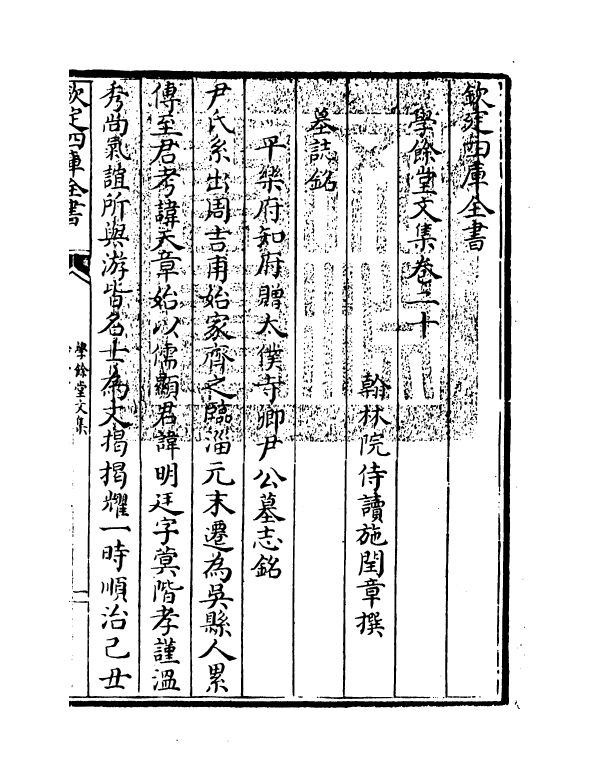 欽定四庫全書
學餘堂文集卷二十
翰林院侍讀施閏章撰
墓誌銘
平樂府知府贈太僕寺卿尹公墓志銘
尹氏系出周吉甫始家齊之臨淄元末遷為吳縣人累
傳至君考諱天章始以儒顯君諱明廷字蓂階孝謹溫
秀尚氣誼所與游皆名士為文揭揭耀一時順治己丑
欽定四庫全書
學餘堂文集